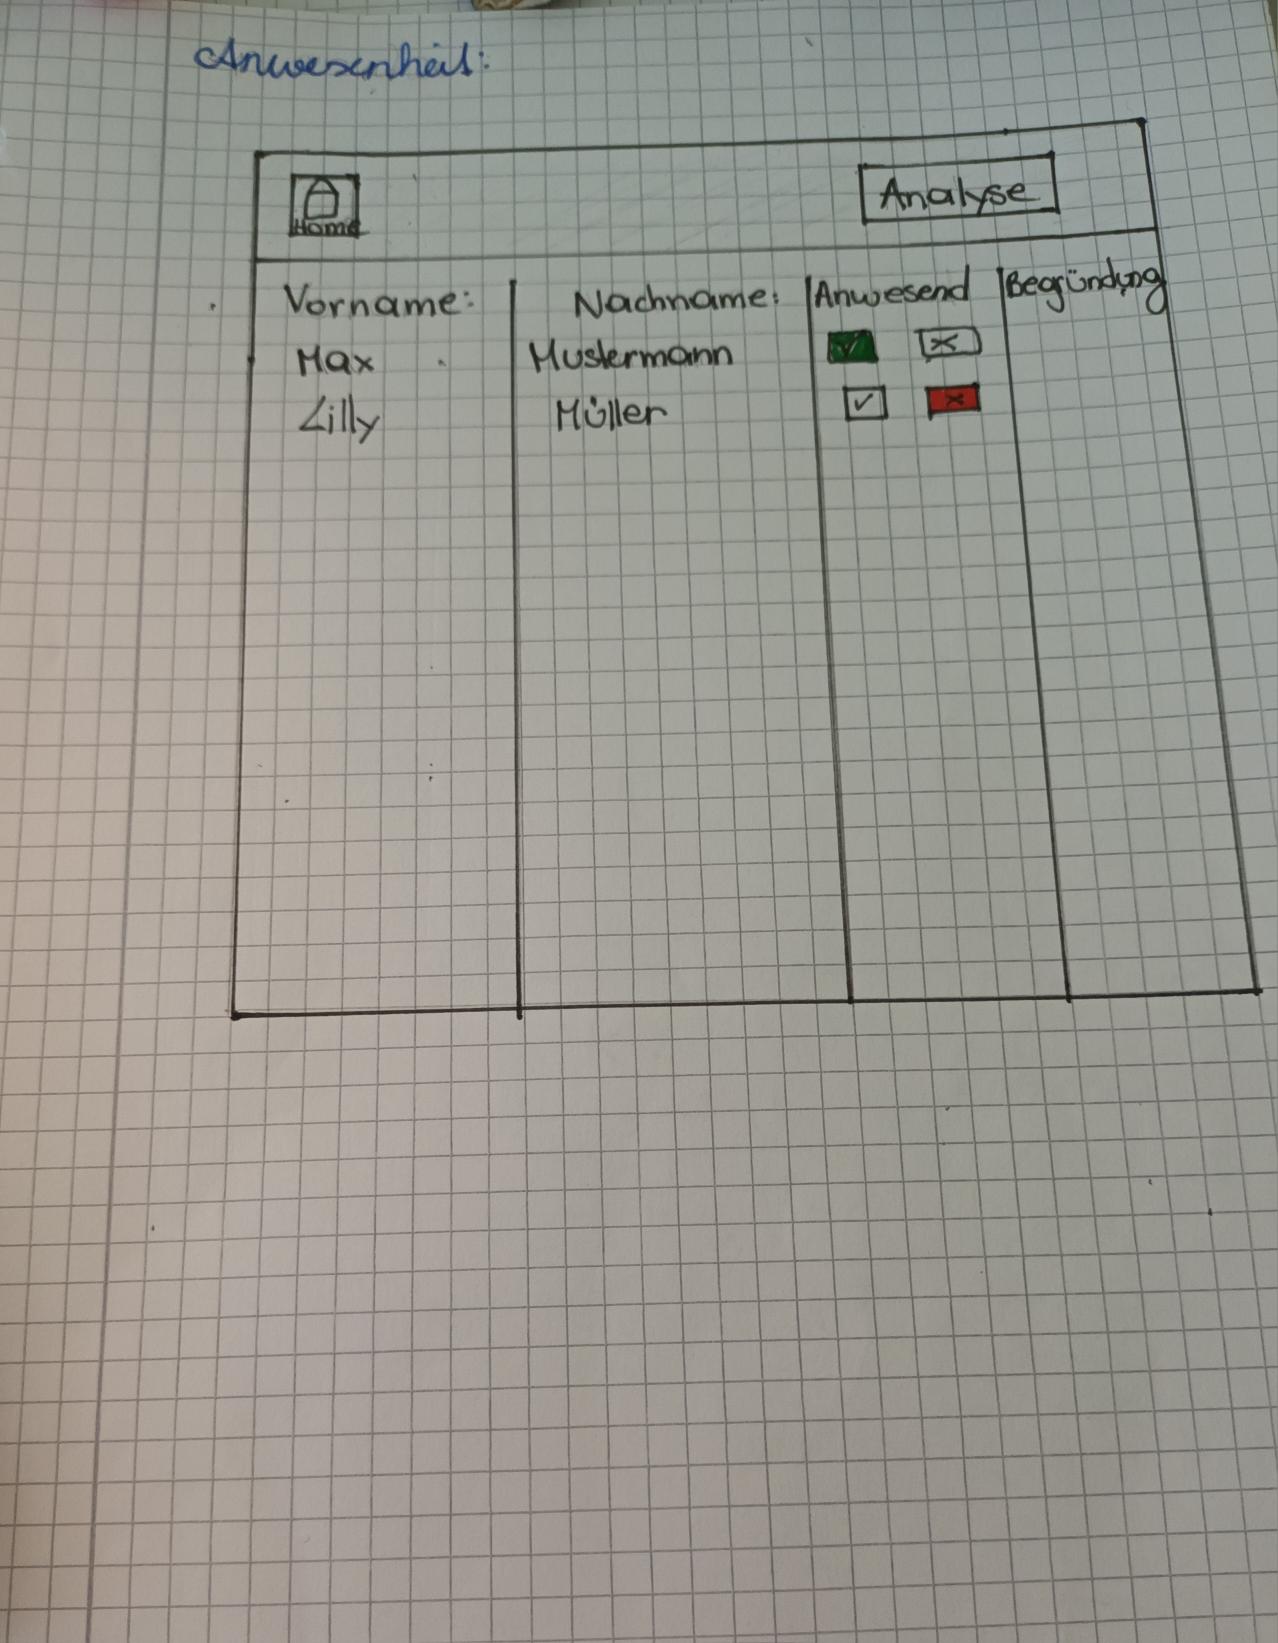 Anwesenheit:
Home
Analyse
Vorname: Nachname: Anwesend Begründung
Max Mustermann ✓ ×
Lilly Müller ✓ ×